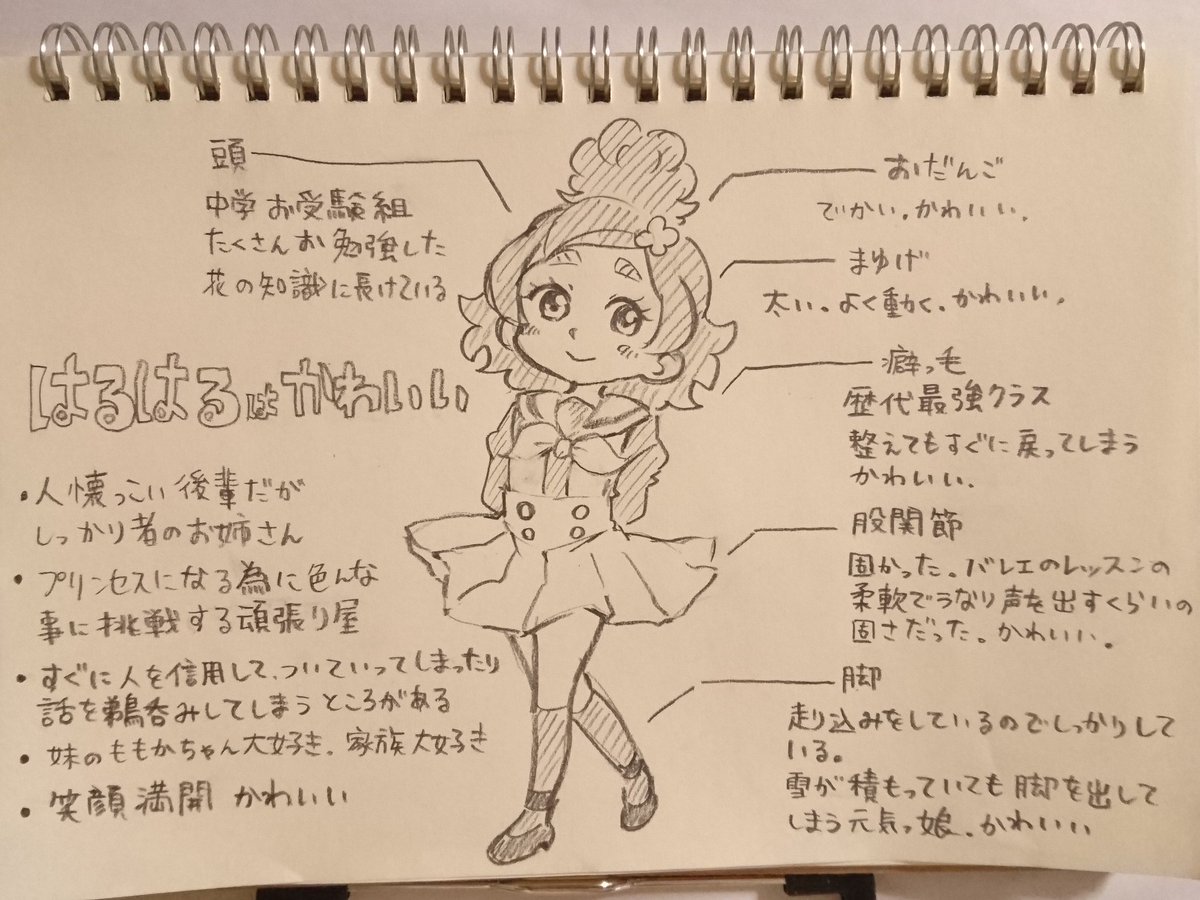 頭
中学お受験組
たくさんお勉強した
花の知識に長けている
おだんご
でかい。かわいい。
まゆげ
太い。よく動く。かわいい。
癖っ毛
歴代最強クラス
整えてもすぐに戻ってしまう
かわいい。
股関節
固かった。バレエのレッスンの
柔軟でうなり声を出すくらいの
固さだった。かわいい。
脚
走り込みをしているのでしっかりして
いる。
雪が積もっていても脚を出して
しまう元気っ娘。かわいい
はるはるはかわいい
・人懐っこい後輩だが
しっかり者のお姉さん
・プリンセスになる為に色んな
事に挑戦する頑張り屋
・すぐに人を信用して、ついていってしまったり
話を鵜呑みしてしまうところがある
・妹のももかちゃん大好き、家族大好き
・笑顔満開 かわいい